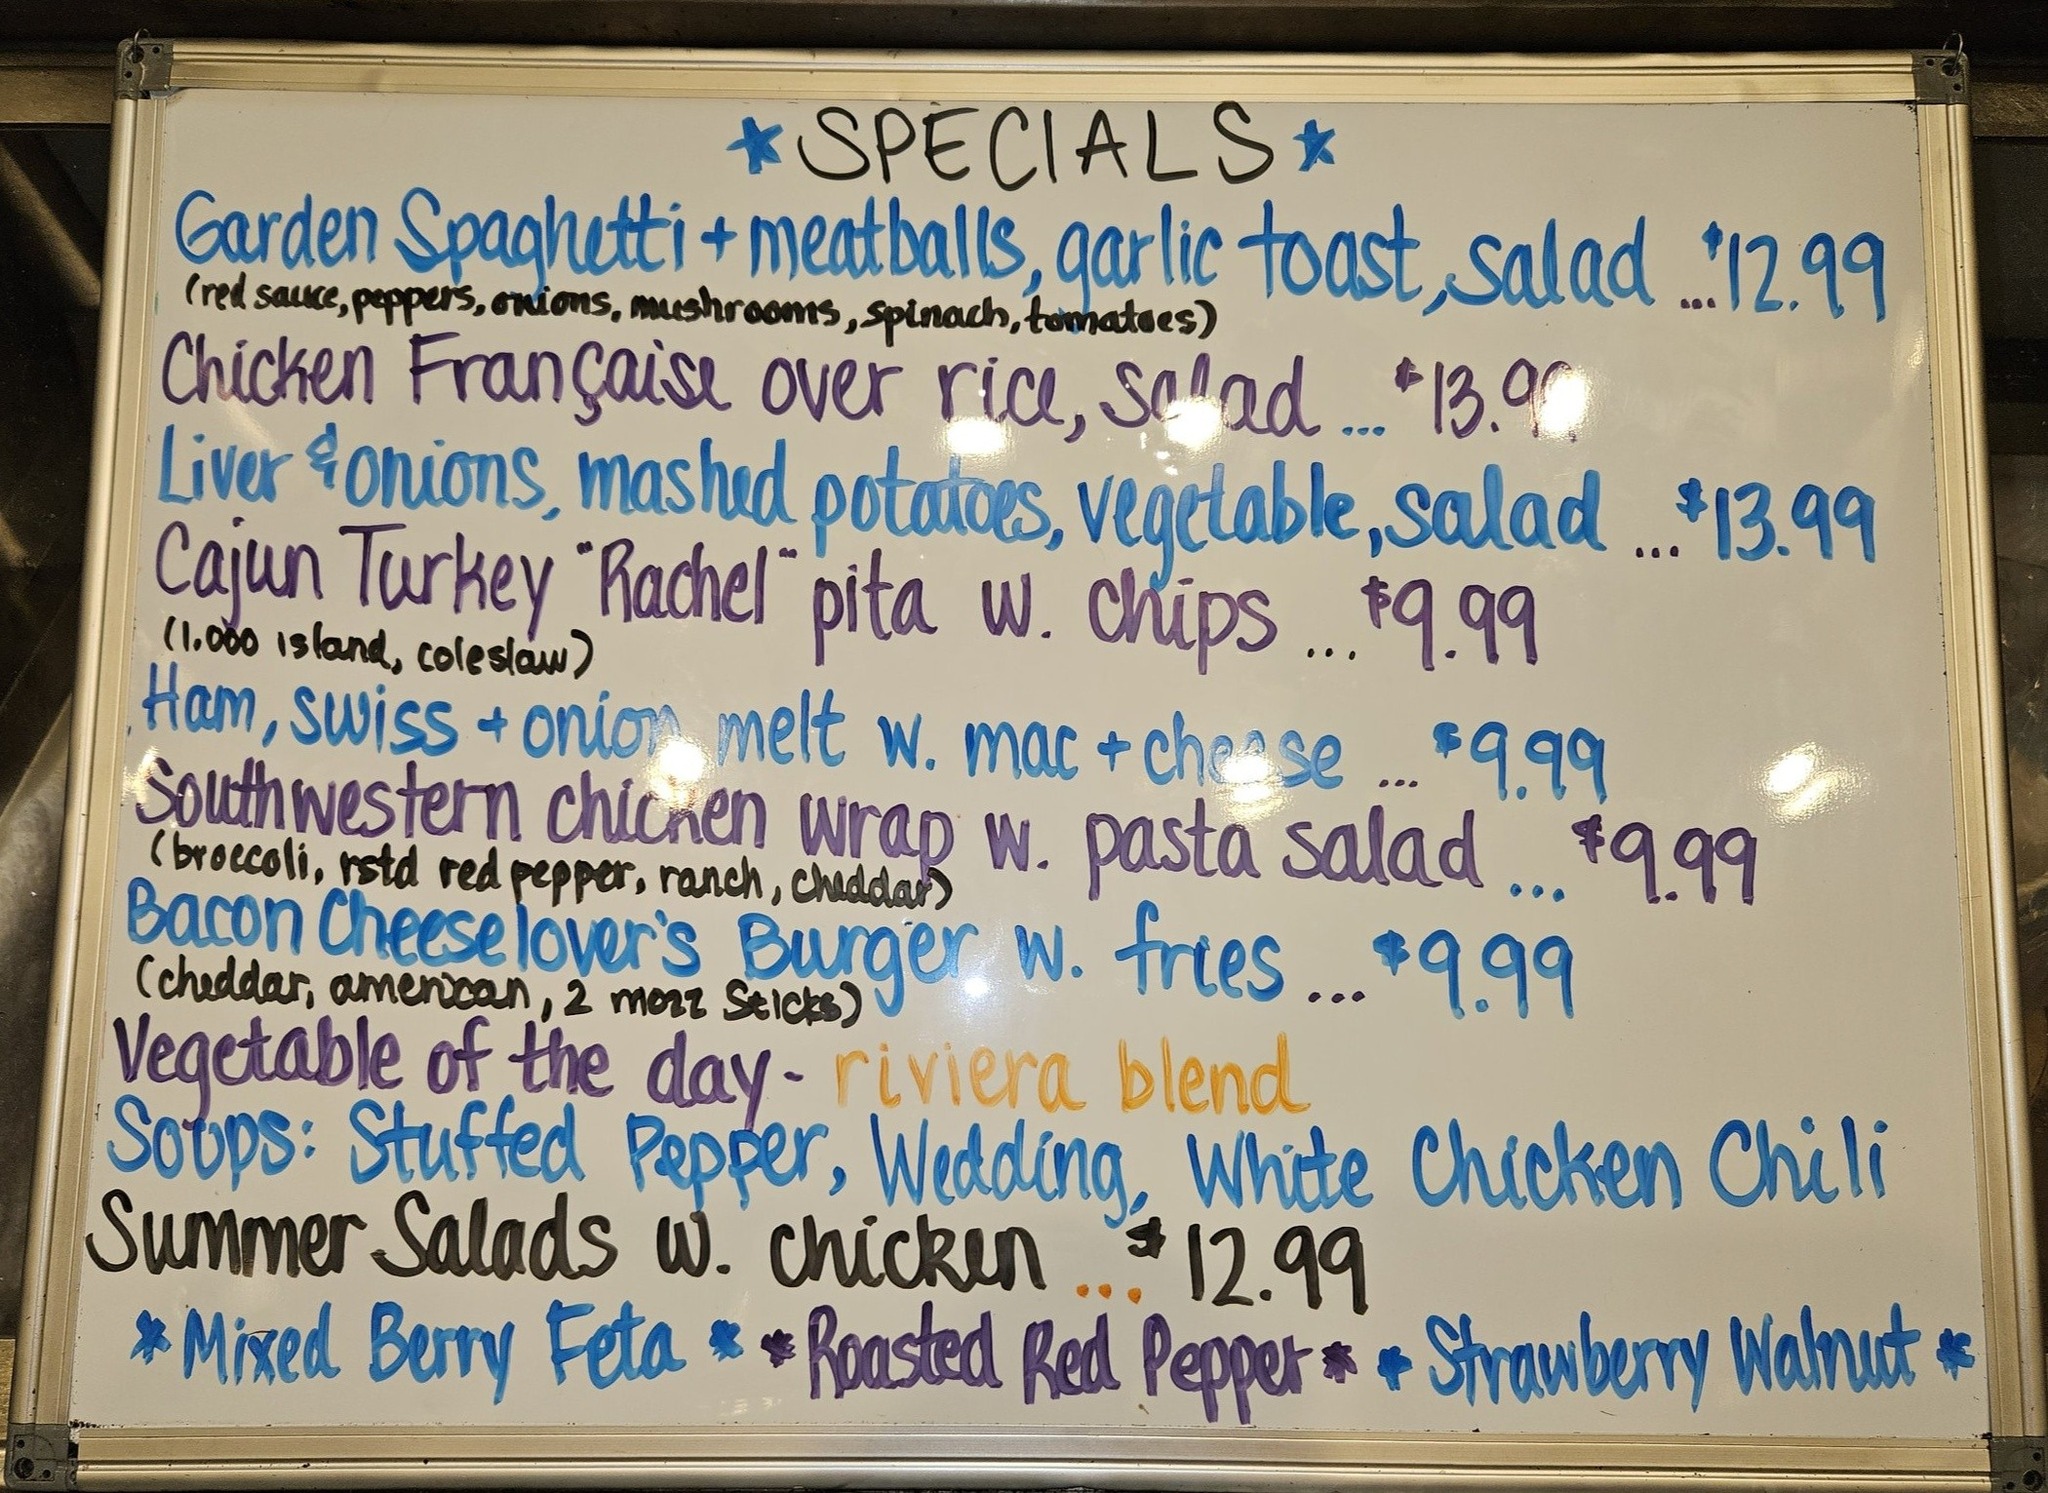 SPECIALS
Garden Spaghetti + meatballs, garlic toast, salad ... $12.99
(red sauce, peppers, onions, mushrooms, spinach, tomatoes)
Chicken Française over rice, salad ... $13.99
Liver & onions, mashed potatoes, vegetable, salad ... $13.99
Cajun Turkey "Rachel" pita w. chips ... $9.99
(1,000 island, coleslaw)
Ham, swiss + onion melt w. mac + cheese ... $9.99
Southwestern chicken wrap w. pasta salad ... $9.99
(broccoli, rstd red pepper, ranch, cheddar)
Bacon Cheeselover's Burger w. fries ... $9.99
(cheddar, american, 2 mozz sticks)
Vegetable of the day - riviera blend
Soups: Stuffed Pepper, Wedding, White Chicken Chili
Summer Salads w. chicken ... $12.99
*Mixed Berry Feta* *Roasted Red Pepper* *Strawberry Walnut*